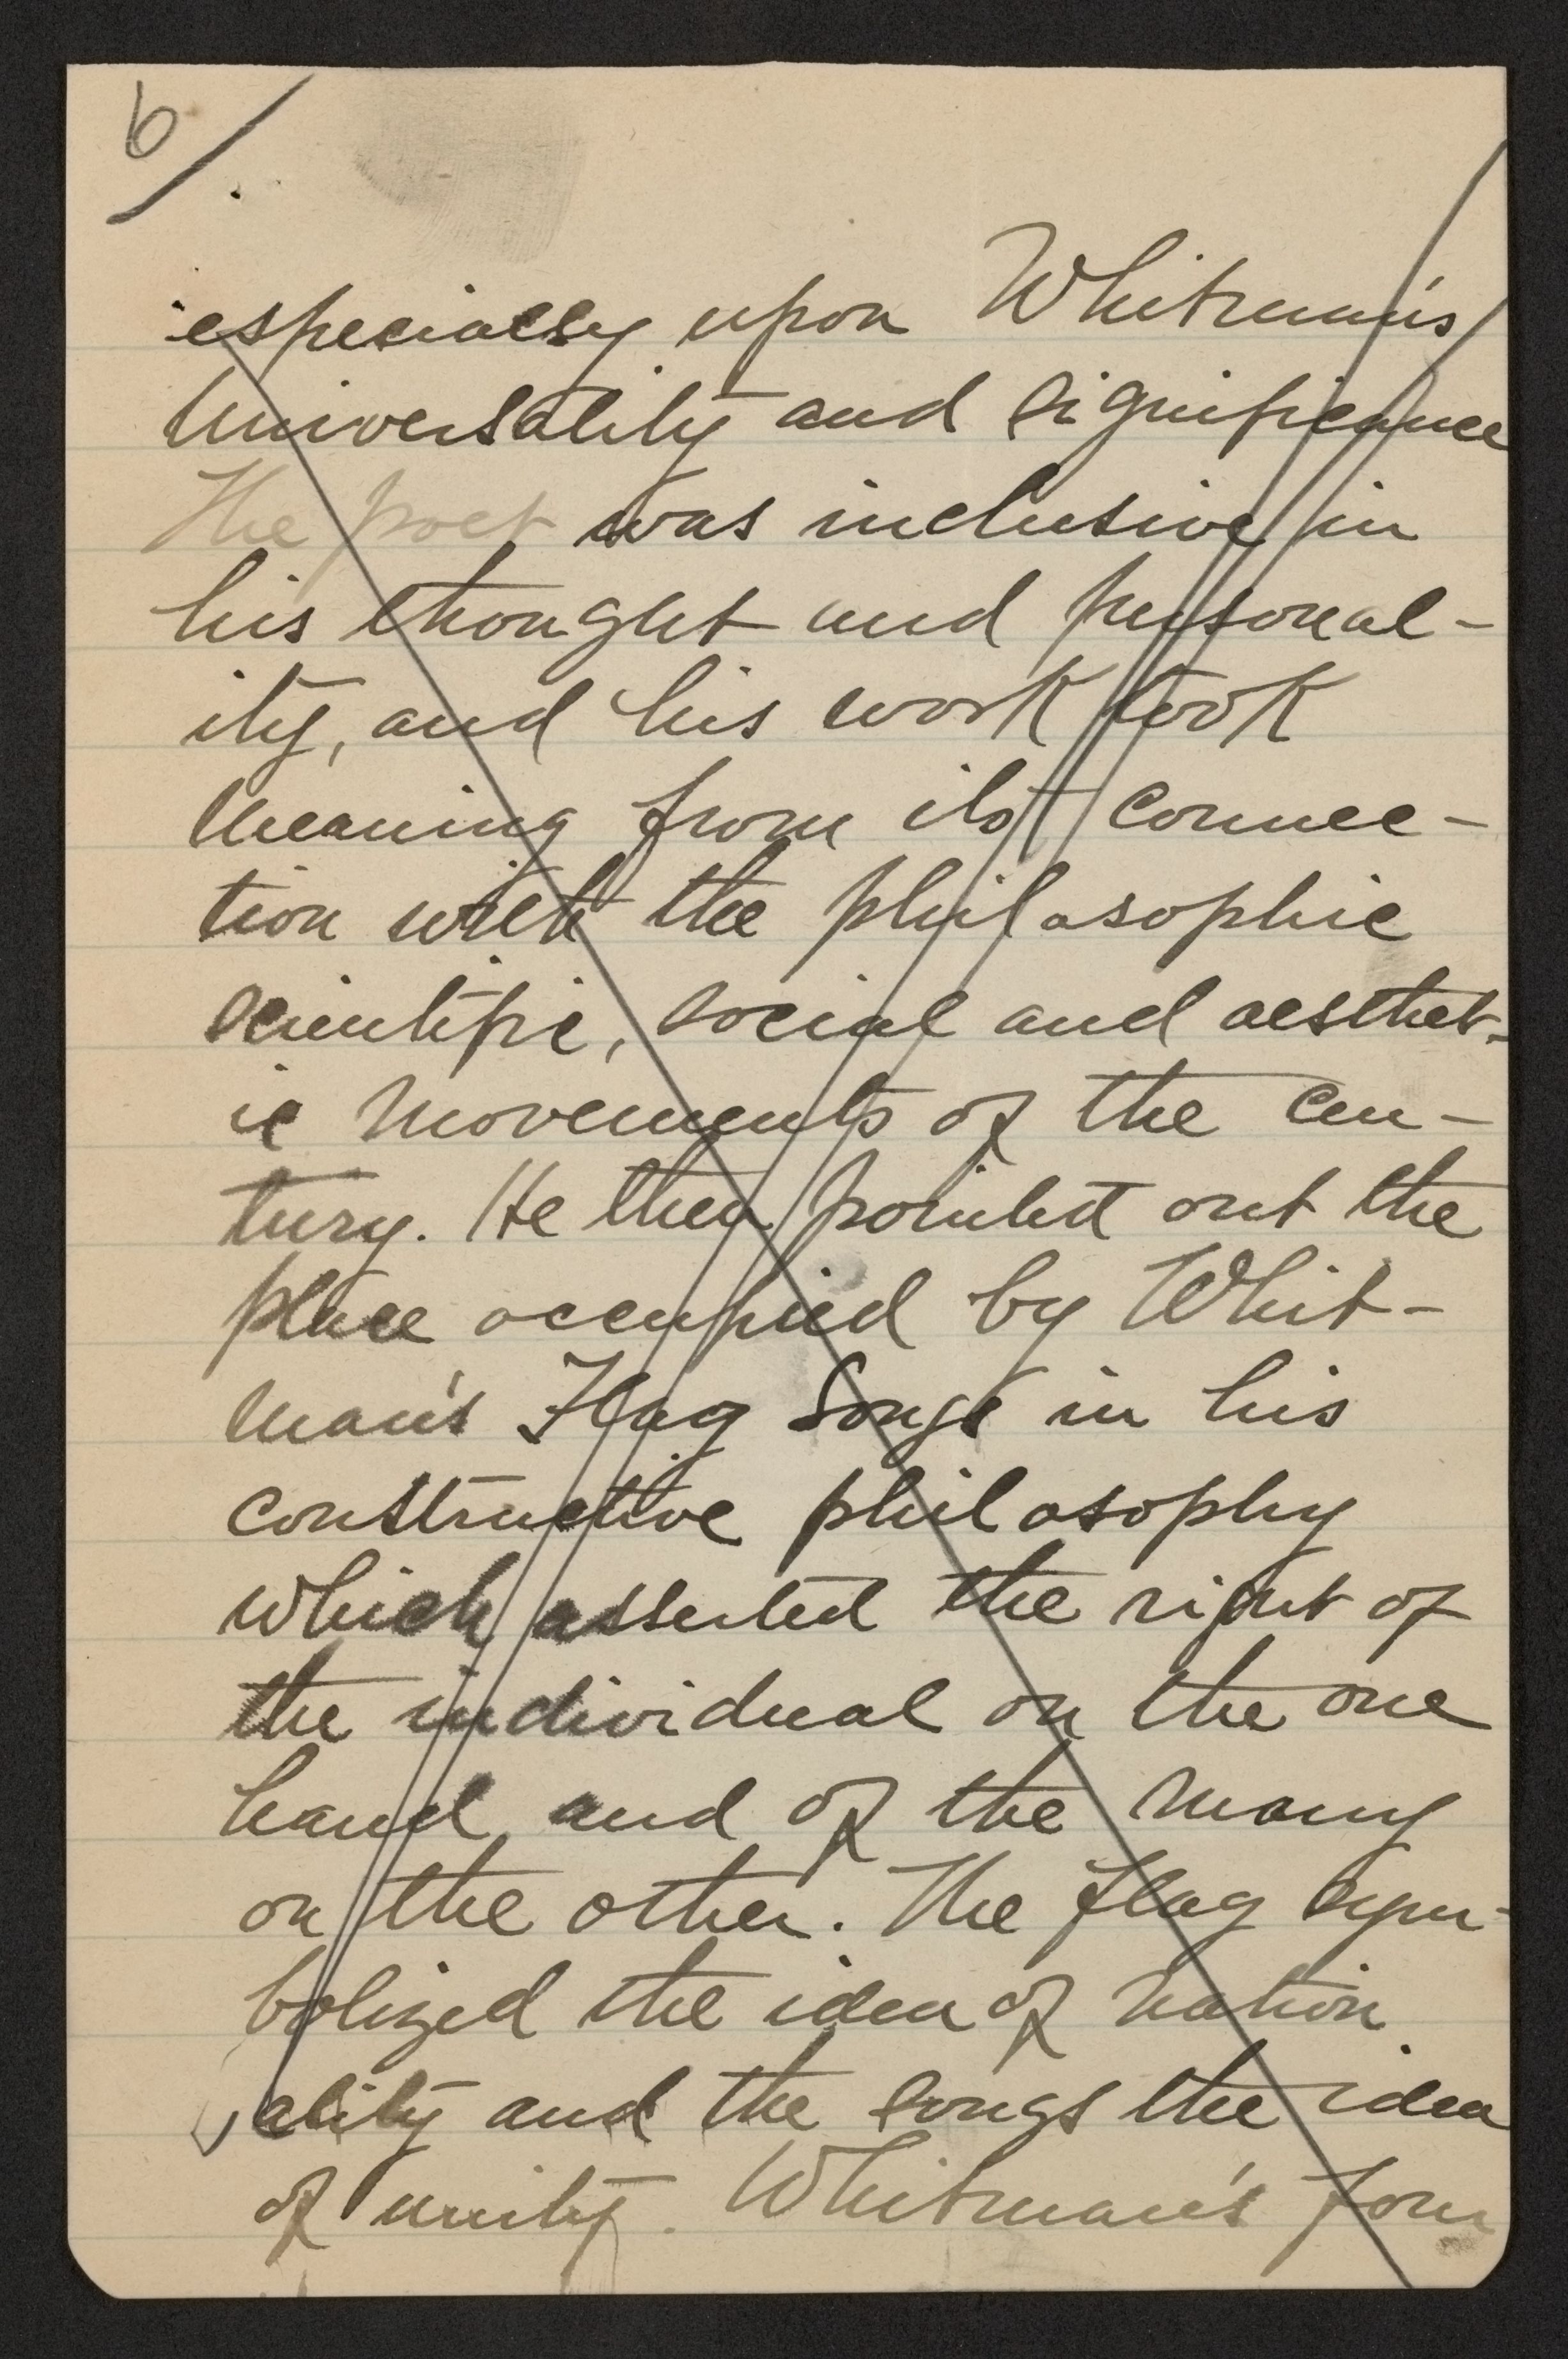 6/.
especially upon Whitman's
universality and significance
The poet was inclusive in
his thought and personal-
ity, and his work took
meaning from its connec-
tion with the philosophic
scientific, social and aesthet-
ic movements of the cen-
tury. He then pointed out the
place occupied by Whit-
man's Flag Songs in his
constructive philosophy
which asserted the right of
the individual on the one
hand, and of the many
on the other. The flag sym-
bolized the idea of nation
ality and the songs the idea
of unity. Whitman's four